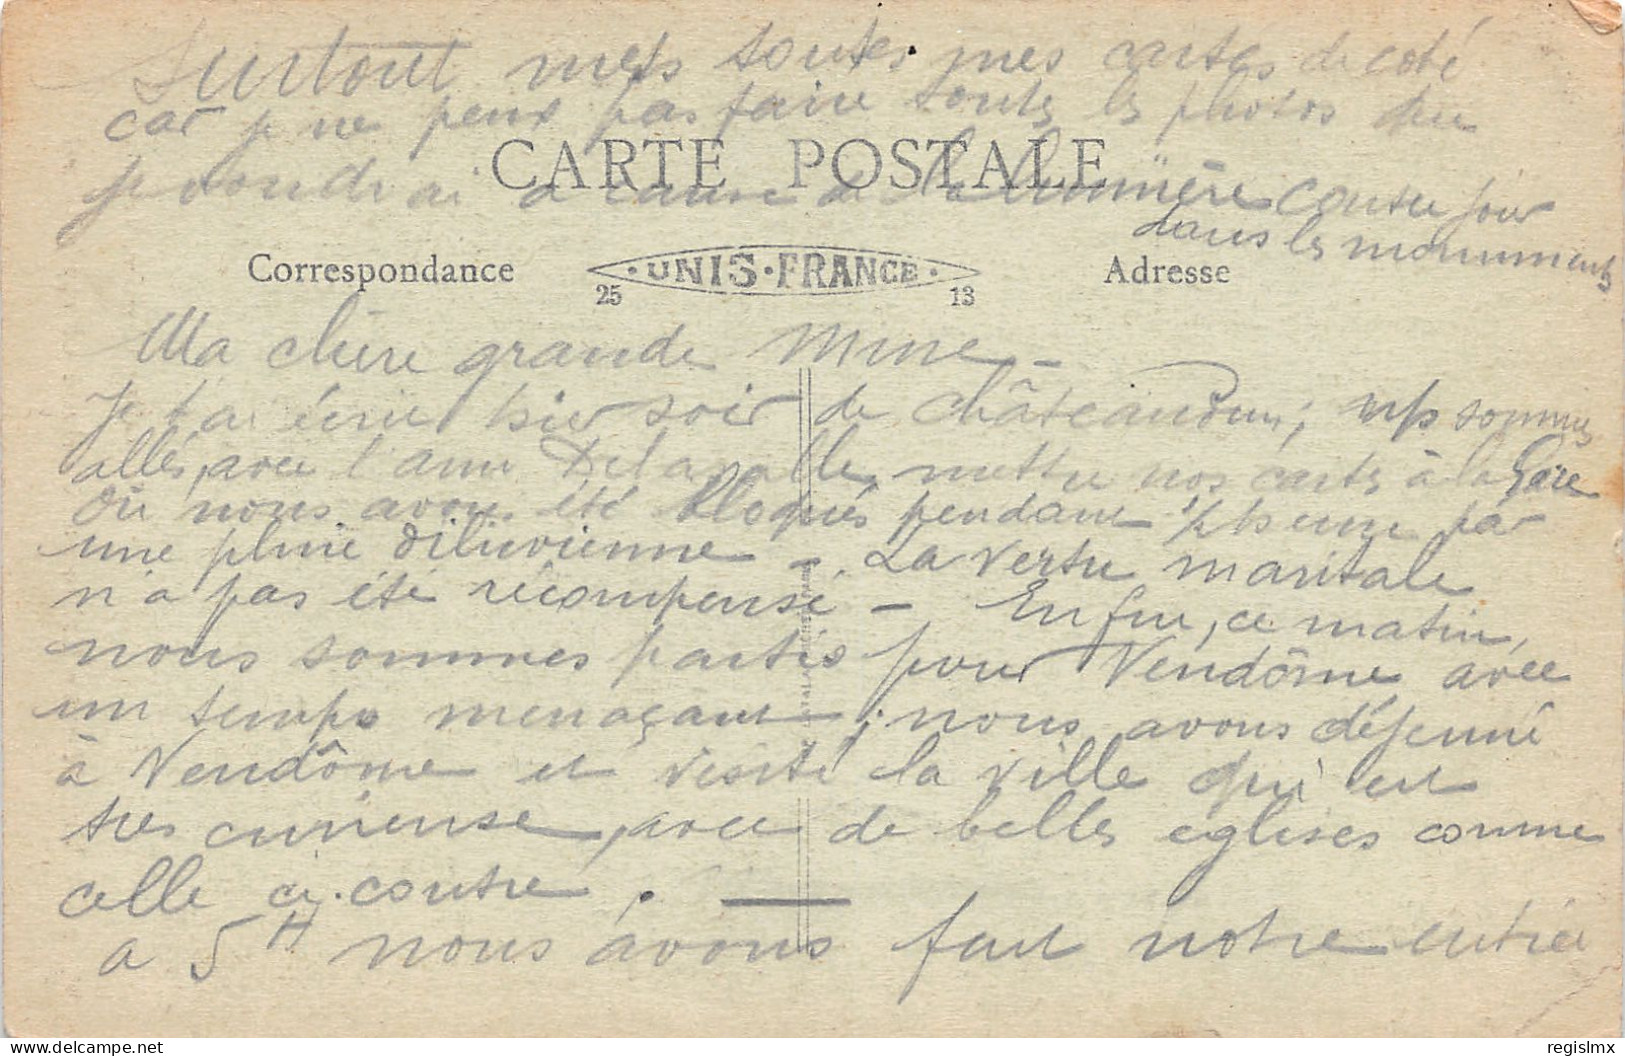 Surtout mets toutes mes cartes de coté
car je ne peux pas faire toutes les photos que
je voudrai à cause de la lumière contre jour
dans les monuments
CARTE POSTALE
Correspondance
UNIS-FRANCE
25 13
Adresse
Ma chère grande Mine_
Je t'ai écrit hier soir de Châteaudun; ns sommes
allés, avec l'ami mettre nos cartes à la Gare
où nous avons été bloqués pendant 1/2 heure par
une pluie diluvienne -. La vertu maritale
n'a pas été récompensé - Enfin, ce matin,
nous sommes partis pour Vendôme avec
un temps menaçant; nous avons déjeuné
à Vendôme et visité la ville qui est
très curieuse, avec de belles églises comme
celle ci-contre.
a 5H nous avons fait notre entrée
Delcampe.net
regislmx